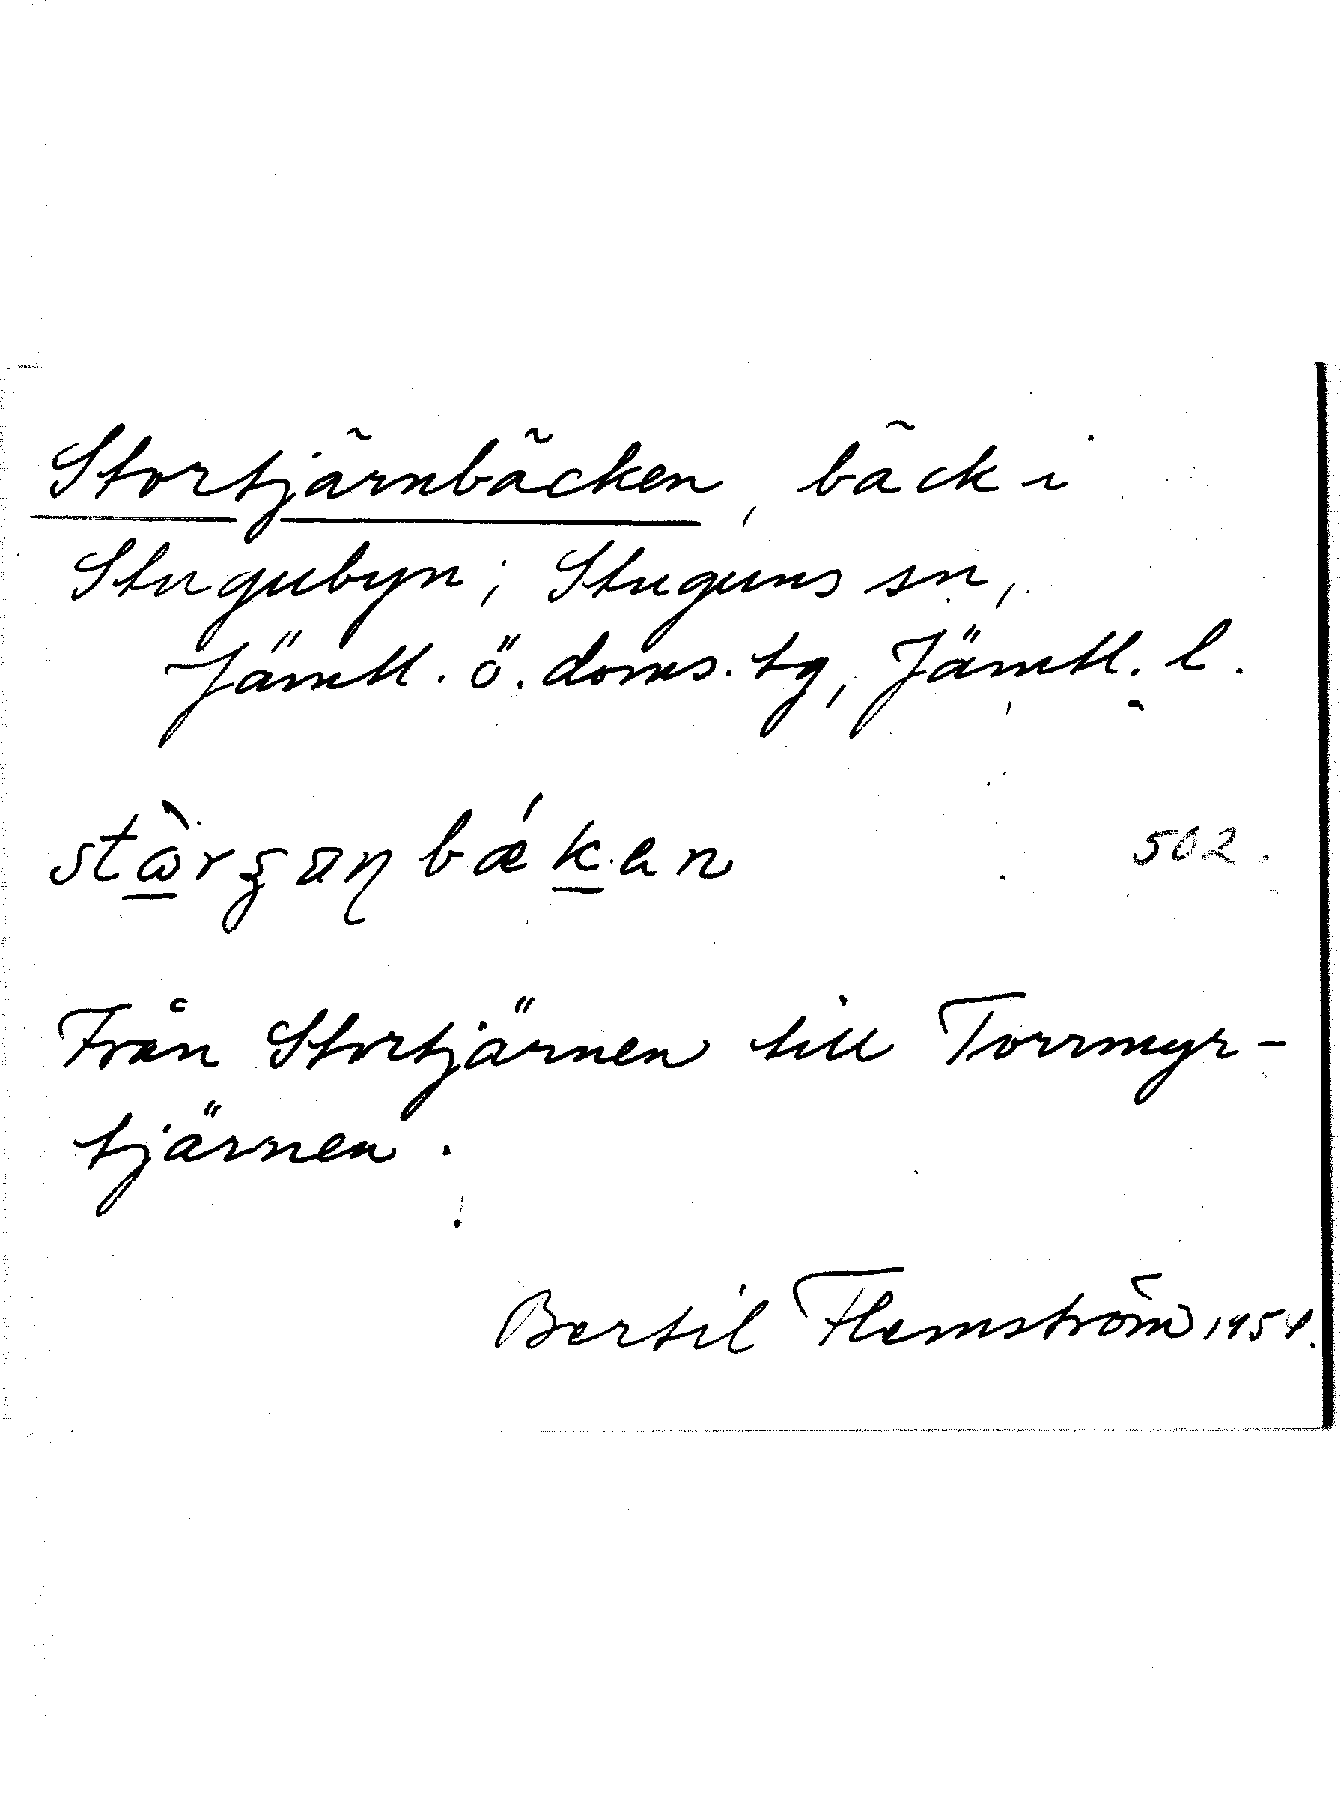 Stortjärnbäcken, bäck i
Stugubyn, Stuguns sn,
Jämtl. ö. doms. tg, Jämtl. l.
502.
Från Stortjärnen till Torrmyr-
tjärnen.
Bertil Flemström 1954.